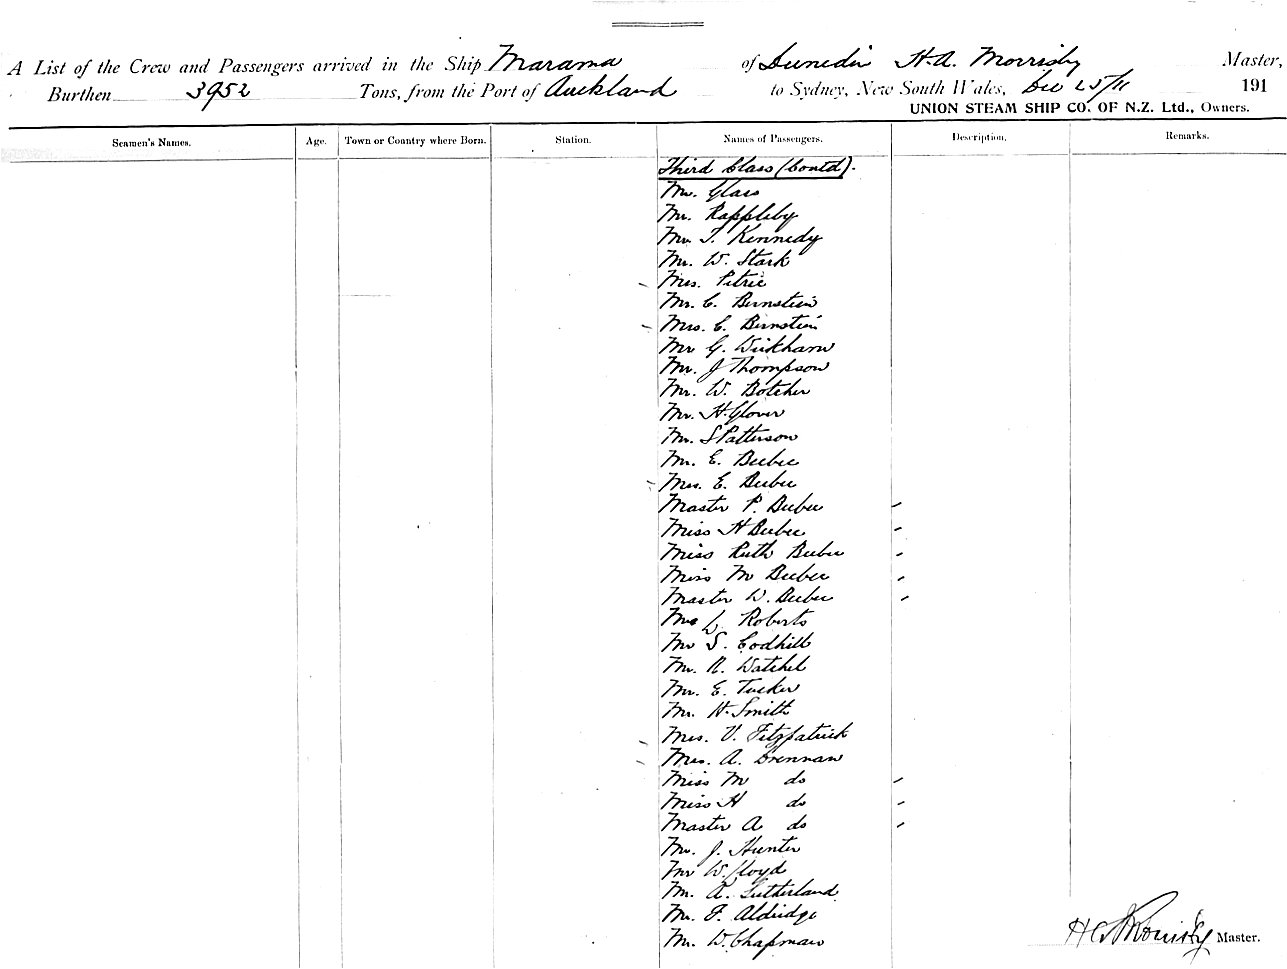 A List of the Crew and Passengers arrived in the Ship Marama of Dunedin H.A. Morrisby Master,
Burthen 3952 Tons, from the Port of Auckland to Sydney, New South Wales, Dec 25/11 191
UNION STEAM SHIP CO. OF N.Z. Ltd., Owners.
Seamen's Names. Age. Town or Country where Born. Station. Names of Passengers. Description. Remarks.
Third Class (Contd).
Mr. Glass
Mr. Rappleby
Mr. T. Kennedy
Mr. W. Stark
Mrs. Petrie
Mr. C. Bernstein
Mrs. C. Bernstein
Mr G. Wickham
Mr. J Thompson
Mr. W. Botcher
Mr. H. Glover
Mr. S Patterson
Mr. E. Beebee
Mrs. E. Beebee
Master P. Beebee
Miss H Beebee
Miss Ruth Beebee
Miss M Beebee
Master W. Beebee
L. Roberts
Mr S. Codhill
Mr. R. Watchel
Mr. E. Tucker
Mr. H. Smith
Mrs. V. Fitzpatrick
Mrs. A. Brennan
Miss M do
Miss H do
Master A do
Mr. J. Hunter
Mr W. Lloyd
Mr. A. Sutherland
Mr. F. Aldridge
Mr. W. Chapman
H A Morrisby Master.